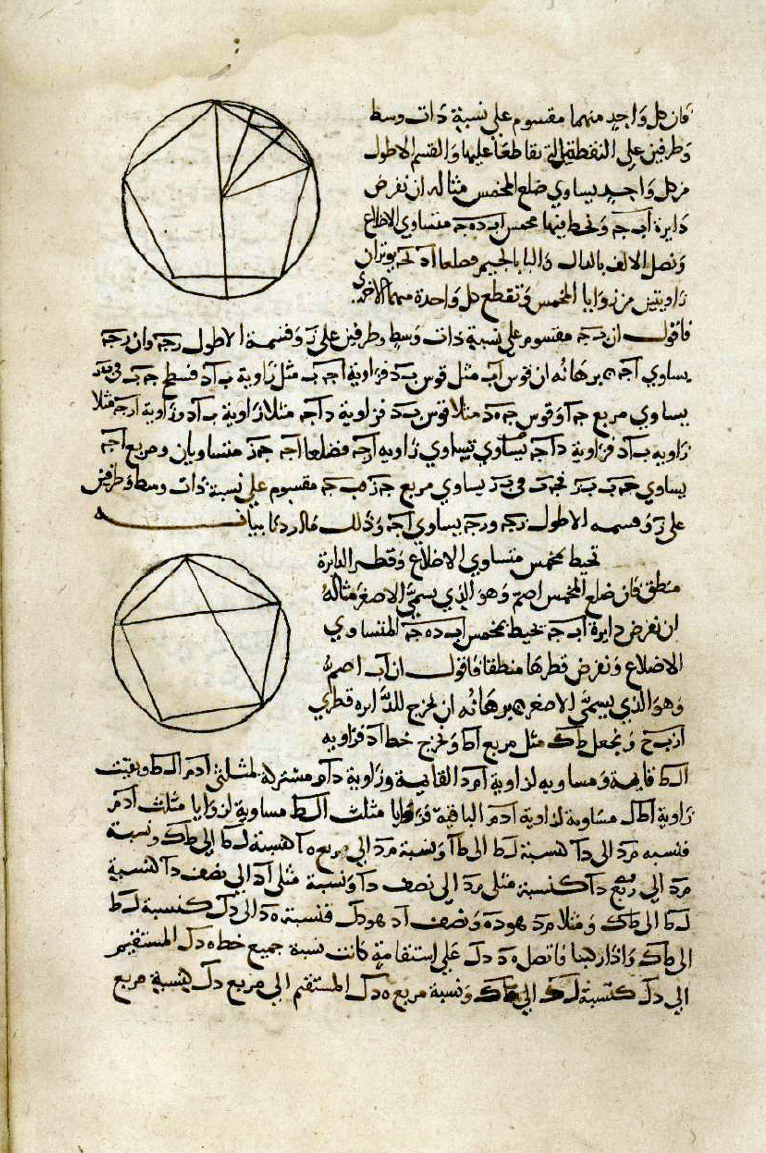 فان كل واحد منهما مقسوم على نسبة ذات وسط
وطرفين على النقطة التي تقاطعا عليها والقسم الاطول
من كل واحد يساوي ضلع المخمس مثاله ان نفرض
دايرة اب جه ونحيط فيها مخمس اب ده جه متساوي الاضلاع
ونصل الالف بالدال والبا بالجيم فطعا اد يوتران
زاويتين من زوايا المخمس وتقطع كل واحدة منهما الاخرى
فاقول ان جه مقسوم على نسبة ذات وسط وطرفين على ز وقسمه الاطول زجه وان زجه
يساوي اجه برهانه ان قوس اب مثل قوس بد فزاوية اجه ب مثل زاوية ب اد فسطح جه ب في بز
يساوي مربع جه ا وقوس جه د مثلا قوس بد فزاوية داجه مثلا زاوية ب اد وزاوية ازجه مثلا
زاويه ب اد فزاوية داجه تساوي زاويه ازجه فضلعا اجه جه ز متساويان ومربع اجه
يساوي جه ب في بز يساوي مربع جه ز ب جه مقسوم على نسبة ذات وسط وطرفين
على ز وقسمه الاطول زجه وزجه يساوي اجه وذلك ما اردنا بيانه
نحيط مخمس متساوي الاضلاع وقطر الدايرة
منطق فان ضلع المخمس اصم وهو الذي يسمى الاصغر مثاله
ان نفرض دايرة اب جه نحيط مخمس اب ده جه المتساوي
الاضلاع ونفرض قطرها منطقا فاقول ان اب اصم
وهو الذي يسمى الاصغر برهانه ان نخرج للدايره قطري
ونجعل طك مثل مربع اط ونخرج خط اد فزاويه
الط قايمة ومساويه لزاوية امد القايمة وزاوية دام مشتركة لمثلثي ادم الط وبقيت
زاوية اطل مساوية لزاوية ادم الباقية فزوايا مثلث الط مساوية لزوايا مثلث ادم
فنسبه مد الى دا كنسبة لط الى طا ونسبة مد الى مربع دا كنسبة لط الى طك ونسبة
مد الى ربع دا كنسبة مثلي مد الى نصف دا ونسبة مثلي اد الى نصف دا كنسبة
لط الى طك ومثلا مد هو ده ونصف اد هو دل فنسبة ه د الى دل كنسبة لط
الى طك واذا ركبنا فاتصل ه د دل على استقامة كانت نسبة جميع خط ه دل المستقيم
الى دل كنسبة لك الى طك ونسبة مربع ه دل المستقيم الى مربع دل كنسبة مربع